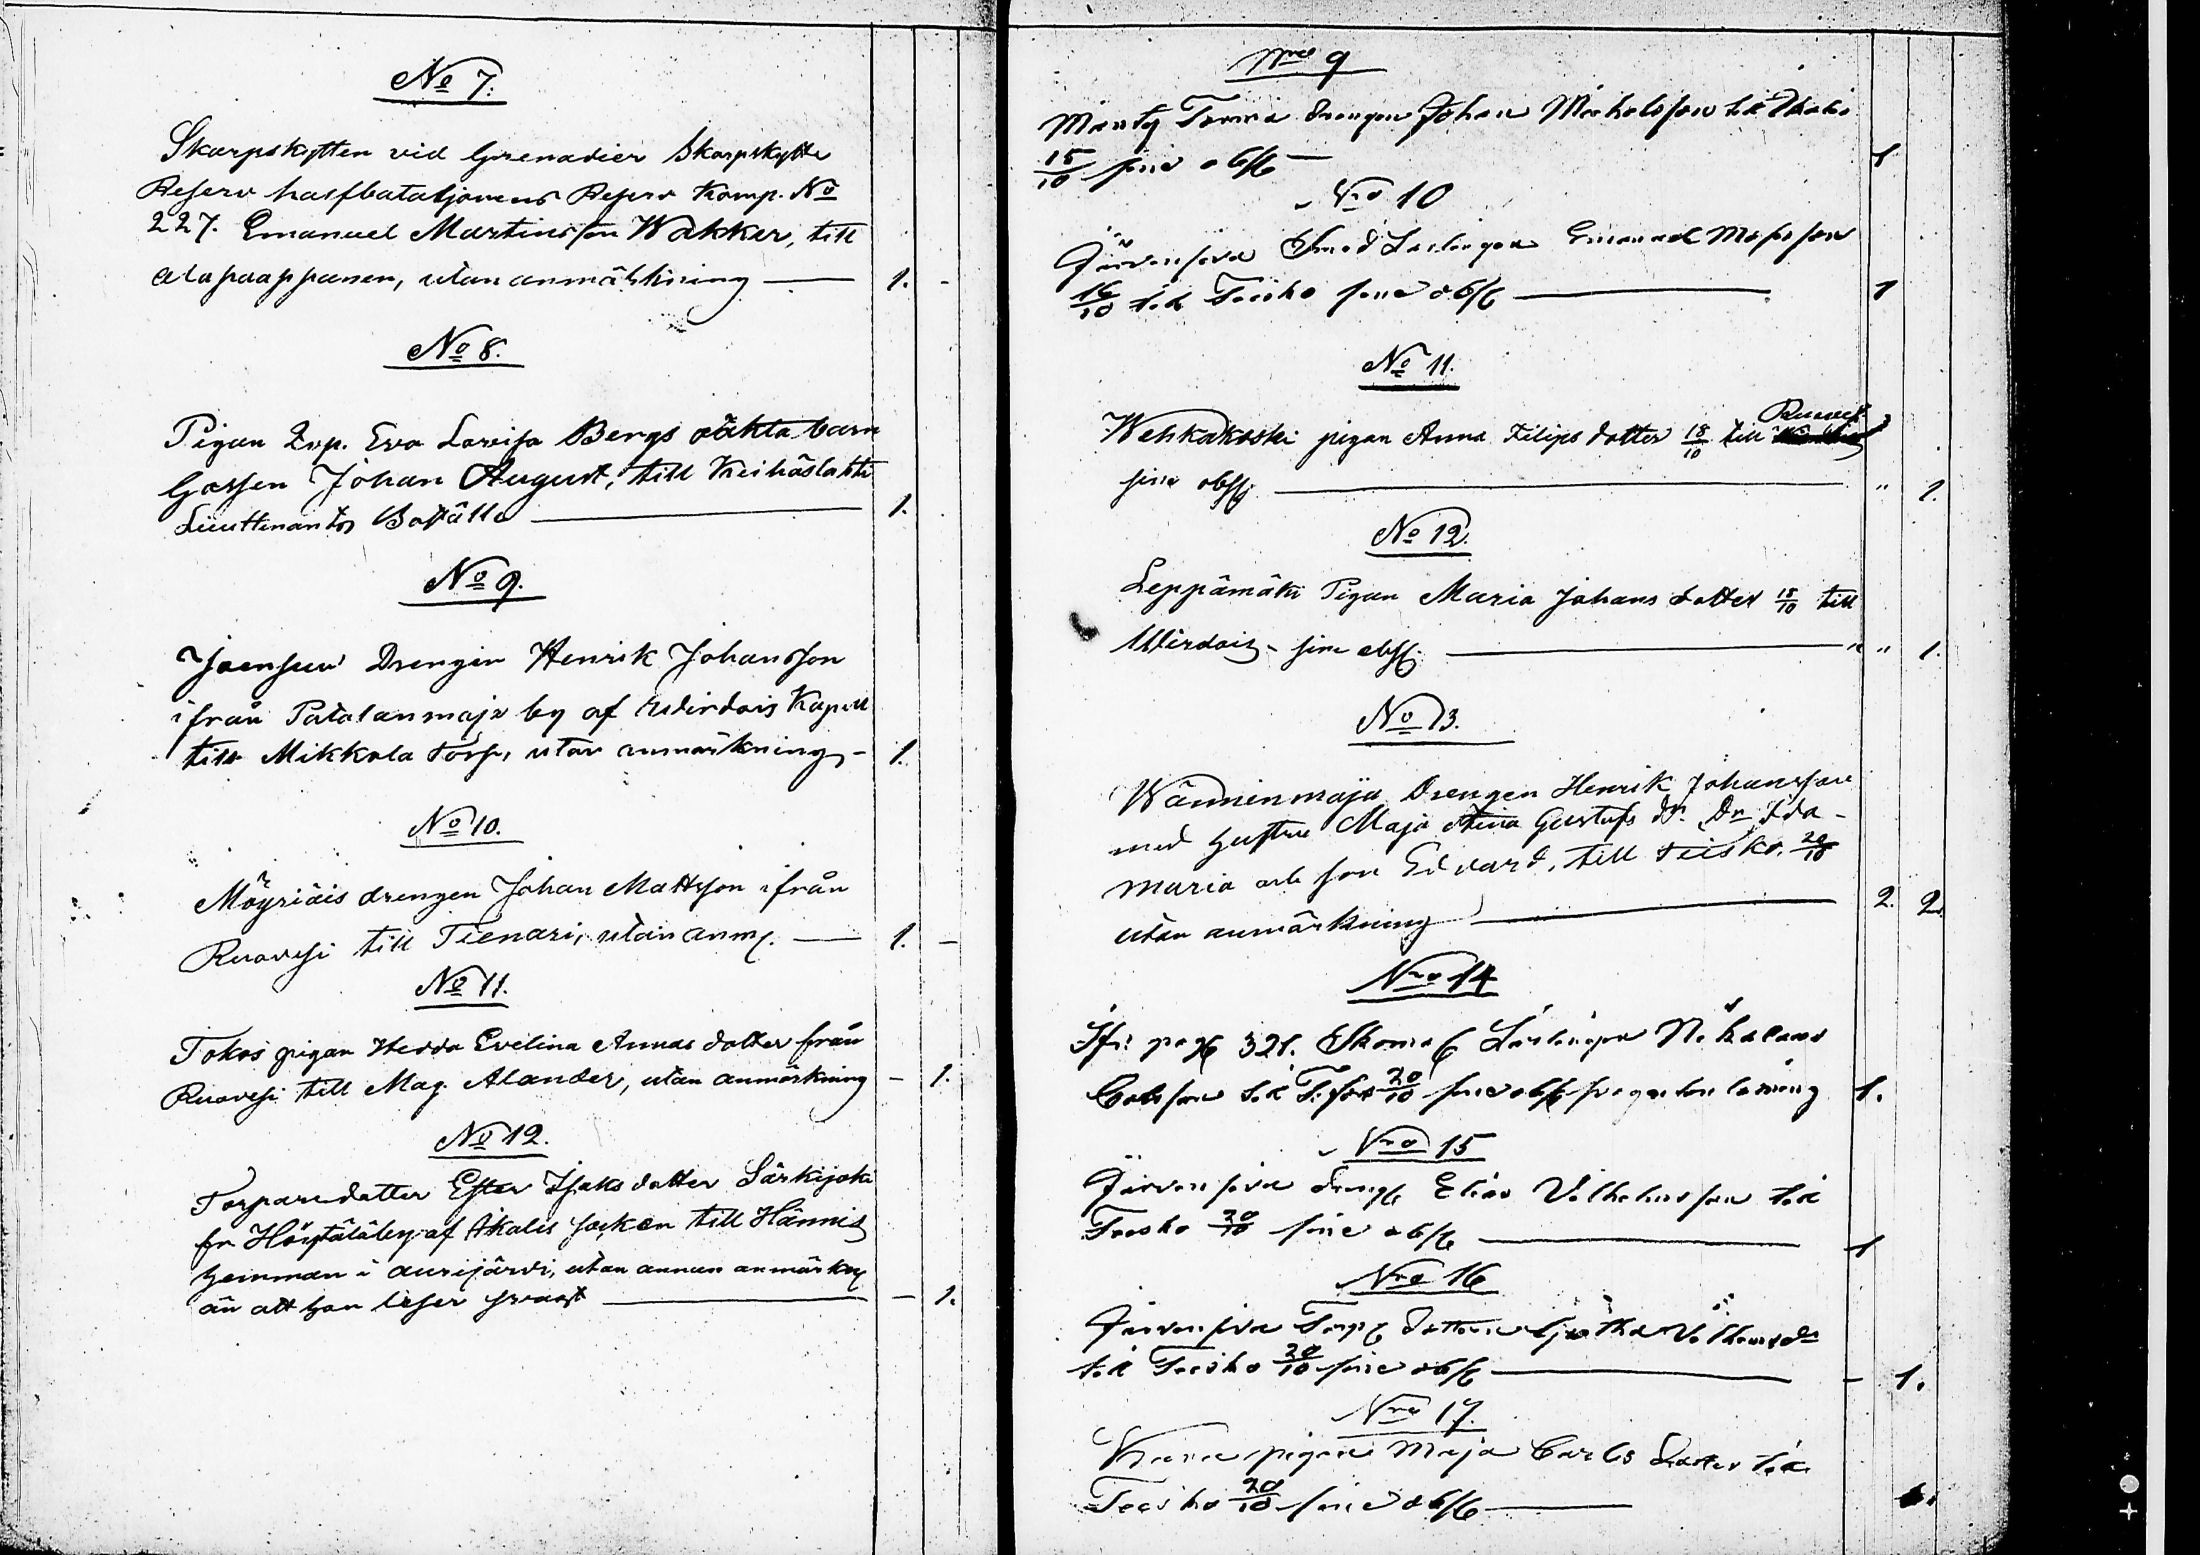 No 7.
Skarpskytten vid Grenadier Skarpskytte
Reserv halfbataljonens Reserv Komp. No
227. Emanuel Martinsson Wakker, till
Alapaappanen, utan anmärkning — 1. -
No 8.
Pigan Eva Lovisa Bergs oäkta barn
Gossen Johan August, till Keihäslahti
Lieuttenants Boställe — 1.
No 9.
Joensuu Drengen Henrik Johansson
ifrån Patalanmaja by af Wirdois Kapell
till Mikkola Torp, utan anmärkning - 1.
No 10.
Möyriäis drengen Johan Mattsson ifrån
Ruovesi till Tienari, utan anm. — 1. -
No 11.
Tokos pigan Hedda Evelina Annas dotter från
Ruovesi till Mag. Alander, utan anmärkning - 1.
No 12.
Torpare dotter Ester Isaks dotter Särkijoki
fr. af Ikalis socken till Hännis
hemman i Aurejärvi, utan annan anmärkn
än att hon läser svagt — - 1.
Nro 9
Mänty Torma drengen Johan Michelsson till
15/10 sine obss — 1
Nro 10
Järvensivu Smed Lärlingen Emanuel
16/10 till Teisko sine obss — 1
No 11.
Wehkakoski pigan Anna Filips dotter 18/10 till Ruovesi
sine obss — " 1.
No 12.
Leppämäki Pigan Maria Johans dotter 18/10 till
Wirdois - sine obss. — " " 1.
No 13.
Wänninmaja Drengen Henrik Johansson
med hustru Maja Stina Gustafs dr. Dr Ida -
Maria och son Edvard, till Teisko. 20/10
utan anmärkning — 2. 2.
Nro 14
321. Lärlingen
till 20/10 sine obss 1.
Nro 15
Järvensivu dreng Elias Vilhelmsson till
Teisko 20/10 sine obss — 1
Nro 16
Järvensivu Torp dottern Vilhelmsdr
till Teisko 20/10 sine obss — - 1.
Nro 17.
pigan Maja Carls dotter till
Teisko 20/10 sine obss — 1.